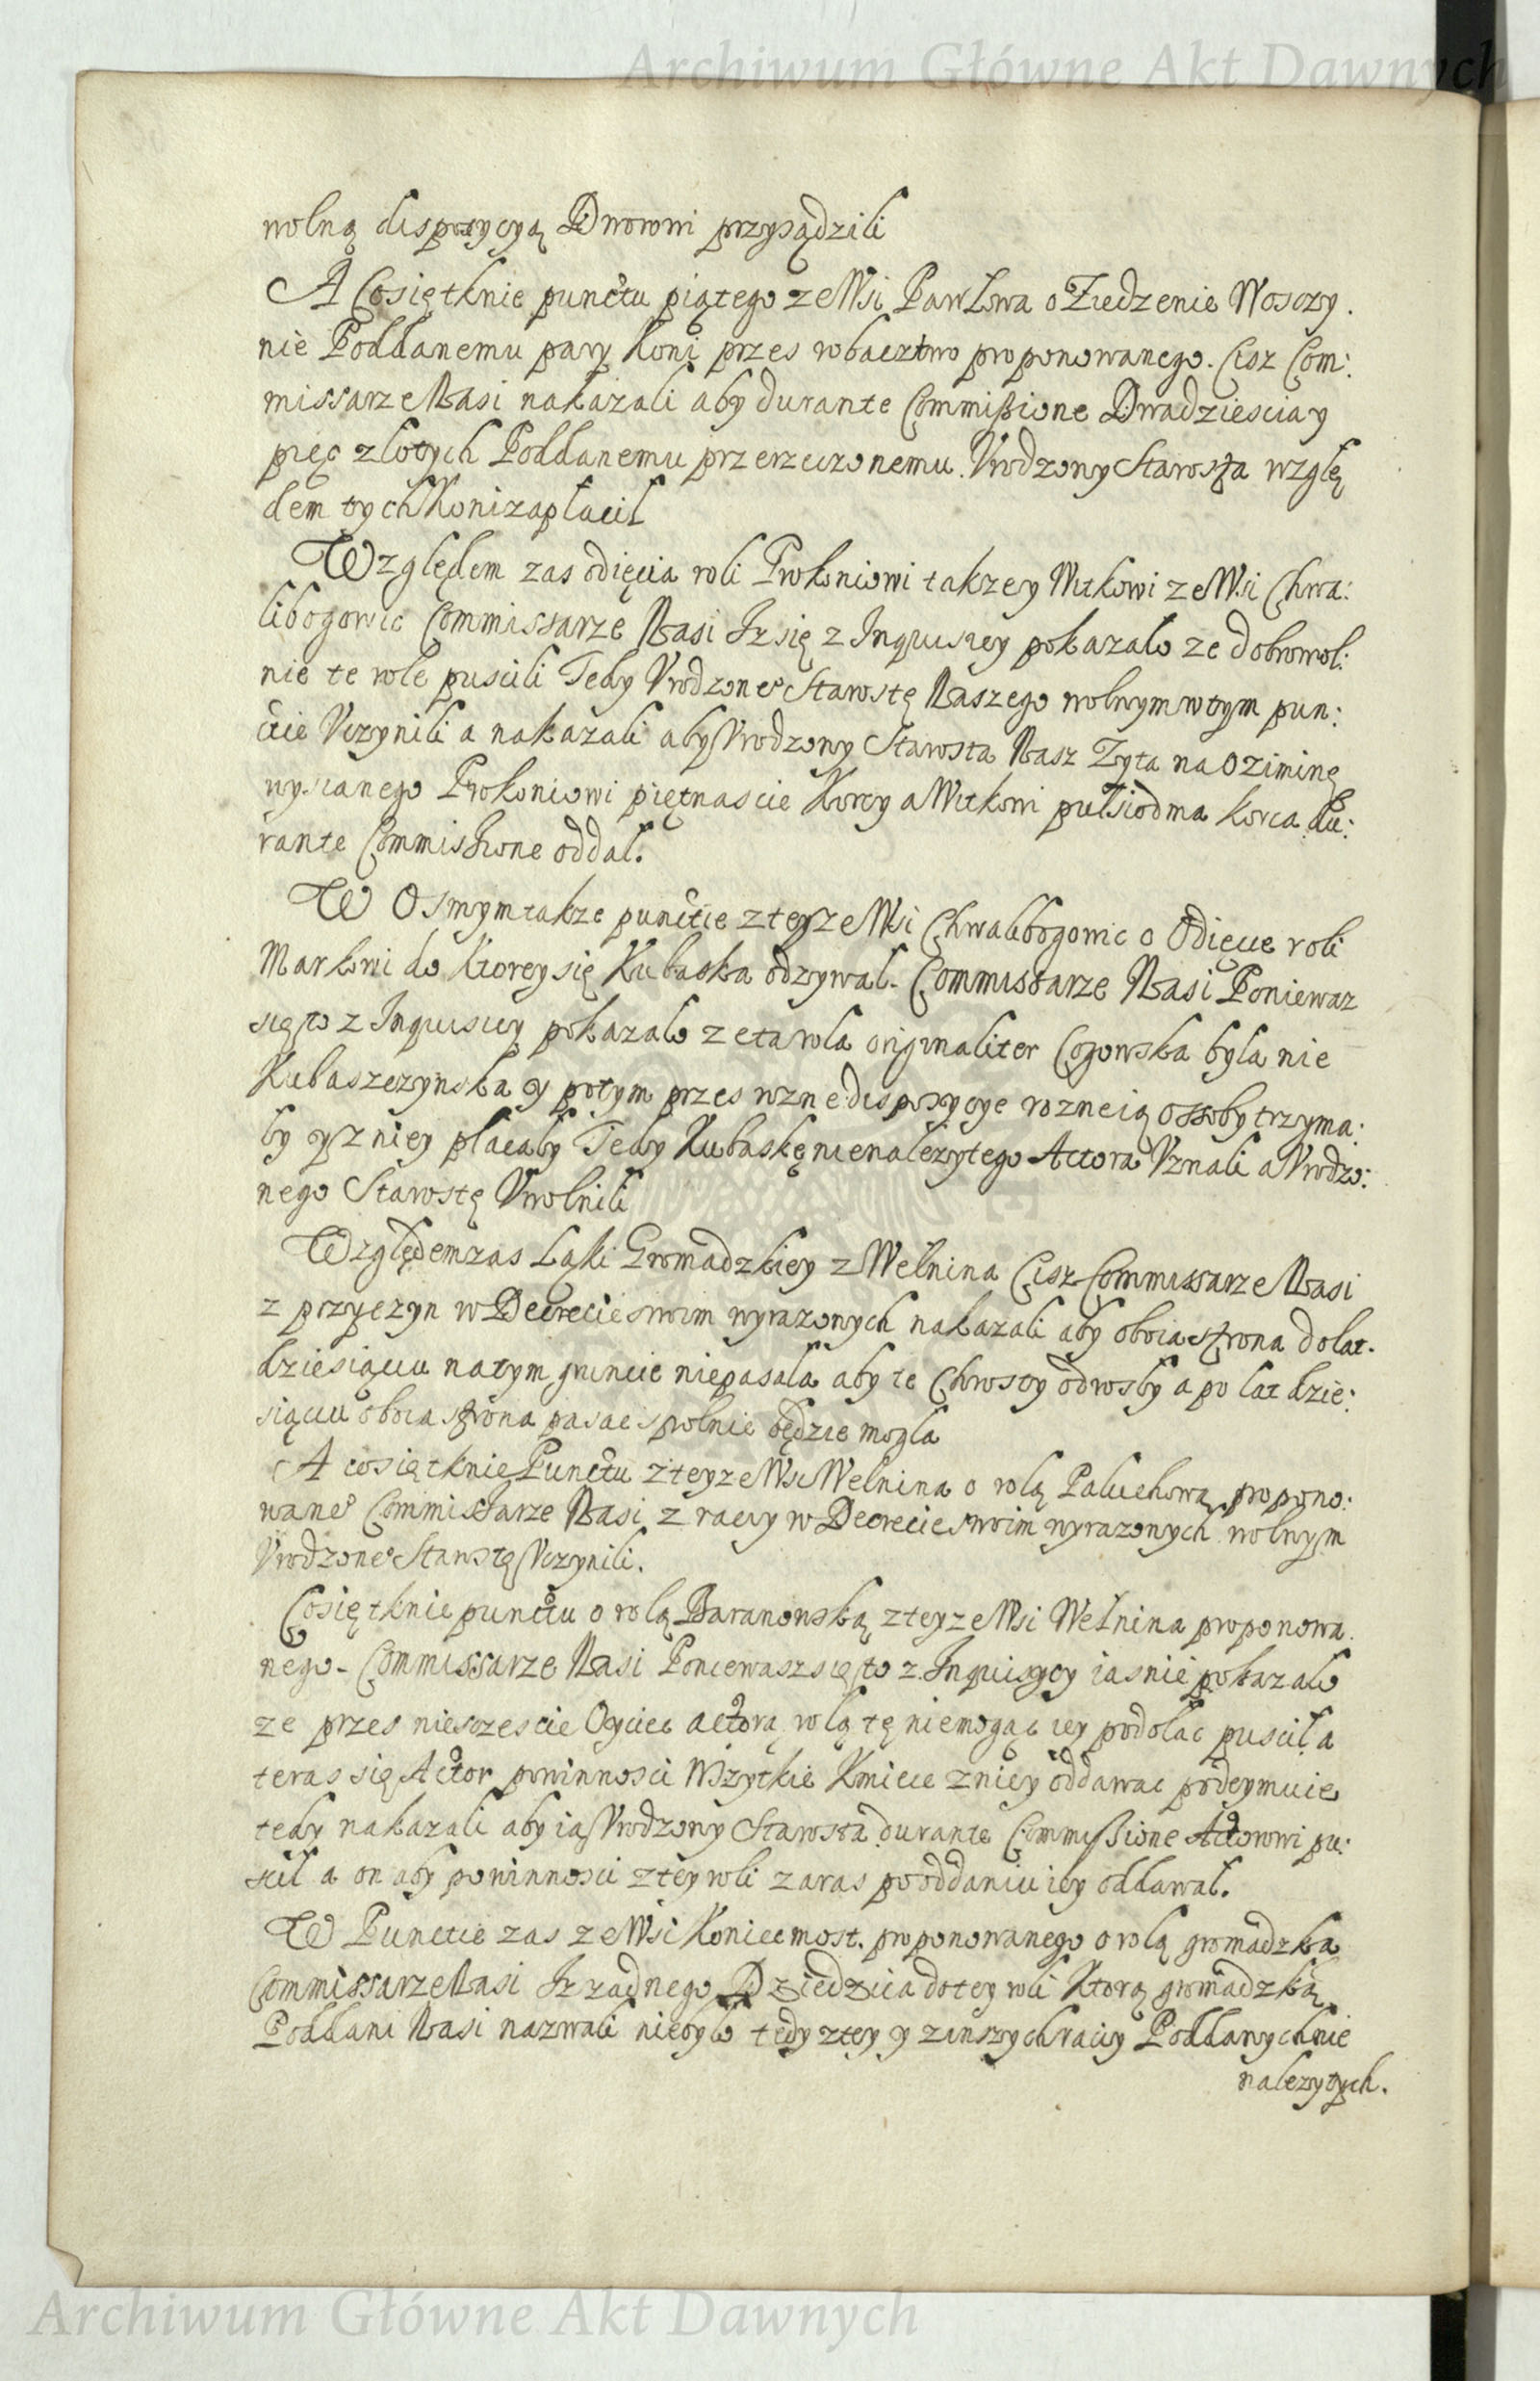 Archiwum Główne Akt Dawnych
wolną dispozycyą Dworowi przysądzili
A Cosię tknie punctu piątego ze Wsi Pawłowa o Ziedzenie Wosczy.
nie Poddanemu pary Koni przes robactwo proponowanego. Cisz Com:
missarze Nasi nakazali aby durante Commissione Dwadziescia y
pięc zlotych Poddanemu przerzeczonemu. Vrodzony Starosta wzglę
dem tych Koni zaplacil
Względem zas odięcia roli Prokoniowi takze y Witkowi ze Wsi Chwa:
libogowic Commissarze Nasi Iz się z Inquisicy pokazalo ze dobrowol:
nie te role puscili Tedy Vrodzone° Starostę Naszego wolnym w tym pun:
ctie Vczynili a nakazali aby Vrodzony Starosta Nasz Zyta na Oziminę
wysianego Prokoniowi piętnascie Korcy a Witkowi pułsiodma korca du:
rante Commissione oddal.
W Osmym takze punctie z teyze Wsi Chwalibogowic o Odięcie roli
Markowi do Ktorey się Kubaska odzywal. Commissarze Nasi Poniewaz
się to z Inquisicy pokazalo ze ta rola originaliter Cogowska byla nie
Kubaszczynska y potym przes rozne dispozycye rozne ią ossoby trzyma:
ly y z niey placaly Tedy Kubaskę nienalezytego Actora Vznali a Vrodzo:
nego Starostę Vwolnili
Względem zas Ląki Gromadzkiey z Wełnina Cisz Commissarze Nasi
z przyczyn w Decrecie swoim wyrazonych nakazali aby oboia strona do lat.
dziesiąciu na tym gruncie niepasala aby te Chrosty odrosly a po lat dzie:
siąciu oboia strona pasac spolnie będzie mogla
A co się tknie Punctu z teyze Wsi Wełnina o rolą Paluchową propono:
wane° Commissarze Nasi z racyy w Decrecie swoim wyrazonych wolnym
Vrodzone° Starostę Vczynili.
Cosię tknie punctu o rolą Baranowską z teyze Wsi Wełnina proponowa.
nego. Commissarze Nasi Poniewasz się to z Inquisycy iasnie pokazalo
ze przes niesczescie Oyciec actora rolą tę niemogąc iey podolac puscil a
teras się Actor powinnosci Wszytkie Kmiece z niey oddawac podeymuie
tedy nakazali aby ią Vrodzony Starosta durante Commissione Actorowi pu:
scil a on aby powinnosci z tey roli zaras po oddaniu iey oddawal.
W Punctie zas ze Wsi Koniecmost. proponowanego o rolą gromadzką
Commissarze Nasi Iz zadnego Dziedzica do tey roli Ktorą gromadzką
Poddani Nasi nazwali niebylo tedy z tey y z inszych raciy Poddanych nie
nalezytych.
Archiwum Główne Akt Dawnych